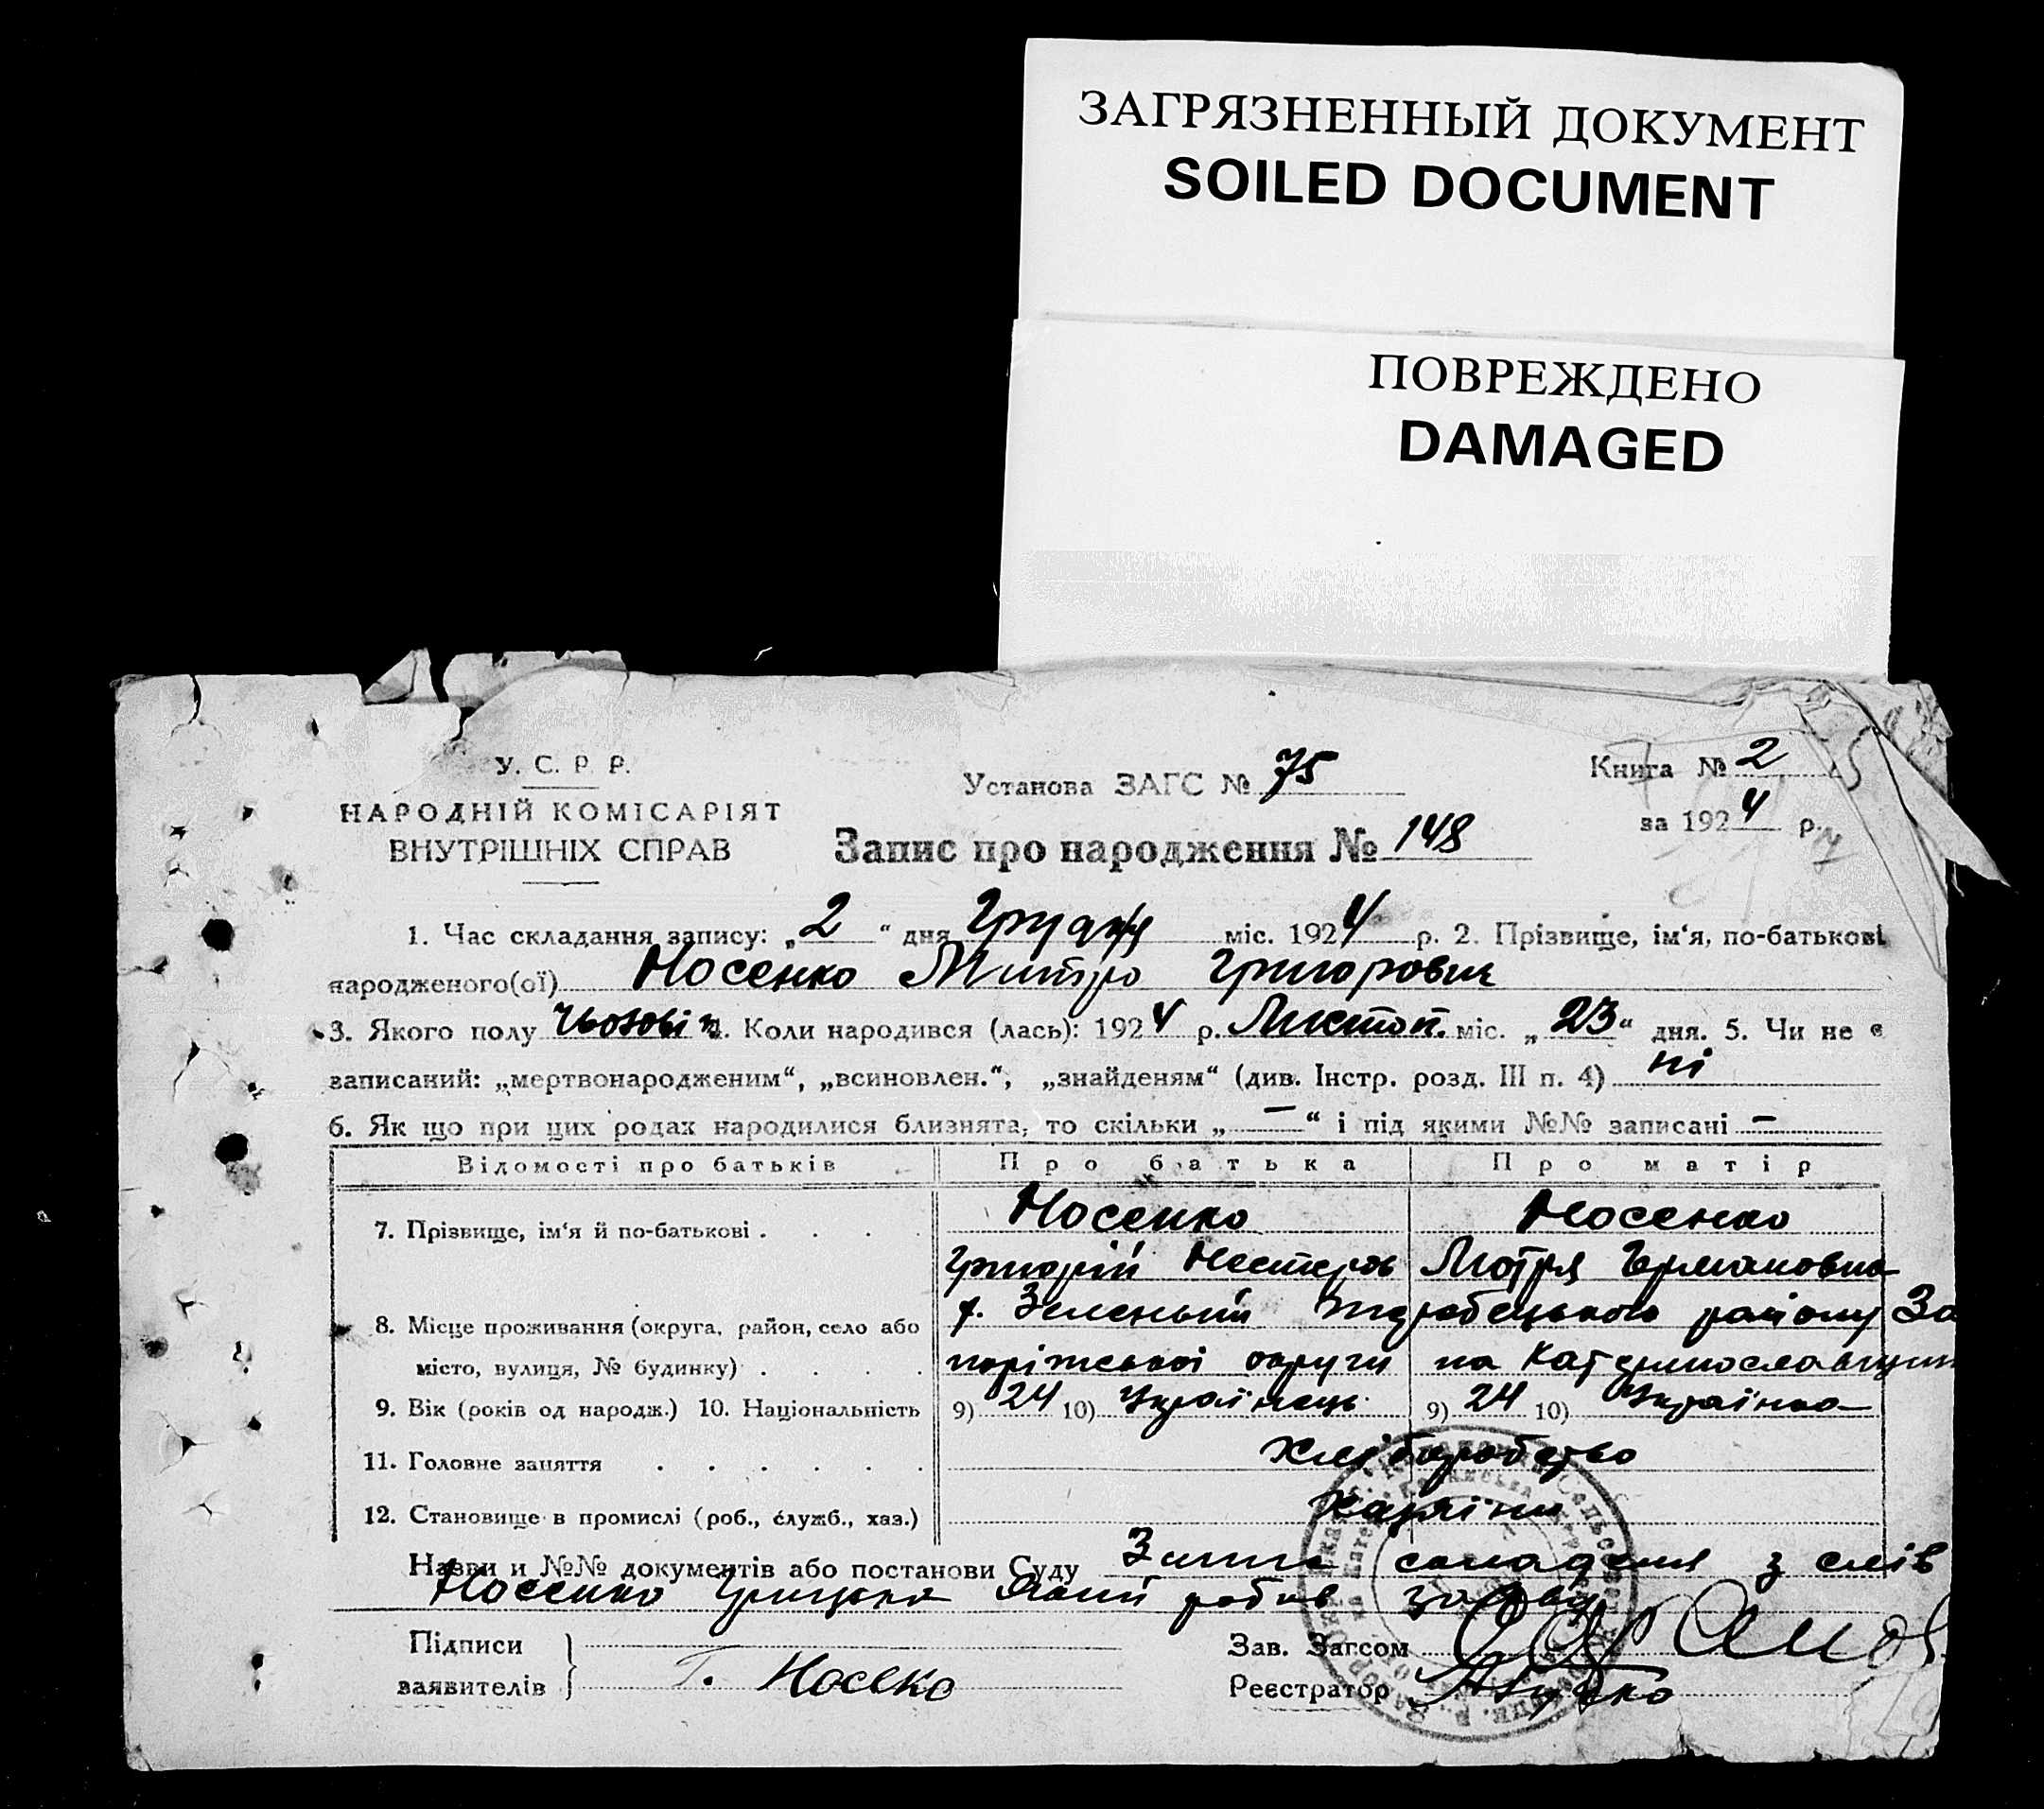 ЗАГРЯЗНЕННЫЙ ДОКУМЕНТ
SOILED DOCUMENT
ПОВРЕЖДЕНО
DAMAGED
У. С. Р. Р.
НАРОДНІЙ КОМІСАРІЯТ
ВНУТРІШНІХ СПРАВ
Установа ЗАГС № 75
Книга № 2
за 1924 р.
Запис про народження № 148
1. Час складання запису: „2“ дня Грудня міс. 1924 р. 2. Прізвище, ім'я, по-батькові
народженого(ої) Носенко Митро Григорович
3. Якого полу Чьоловіч. 4. Коли народився (лась): 1924 р. Листоп. міс. „23“ дня. 5. Чи не є
записаний: „мертвонародженим“, „всиновлен.“, „знайденям“ (див. Інстр. розд. III п. 4) ні
6. Як що при цих родах народилися близнята, то скільки „—“ і під якими №№ записані —
Відомості про батьків Про батька Про матір
7. Прізвище, ім'я й по-батькові . . . . Носенко Носенко
Григорій Нестеров Мотря Германовна
8. Місце проживання (округа, район, село або Зелений районy За
місто, вулиця, № будинку) . . . . поріжської округи на Катеринославщин
9. Вік (років од народж.) 10. Національність 9) 24 10) Українець 9) 24 10) Українка
11. Головне заняття . . . . . . Хліборобство
12. Становище в промислі (роб., служб., хаз.) Хазяїни
Назви и №№ документів або постанови Суду Запис складення з слів
Носенко Грицька який робив заяву
Підписи
заявителів
Т. Носеко
Зав. Загсом
Реєстратор